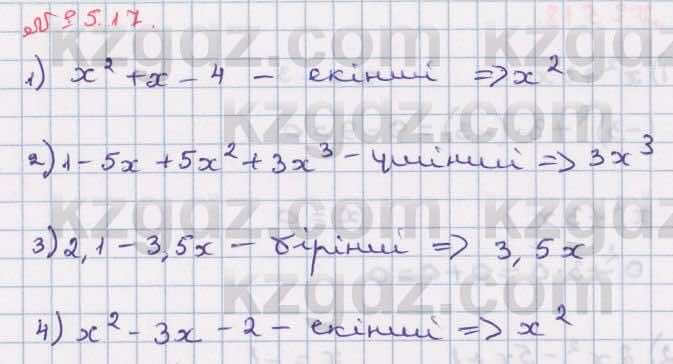 № 5.17.
1) x² + x - 4 - екінші => x²
2) 1 - 5x + 5x² + 3x³ - үшінші => 3x³
3) 2,1 - 3,5x - бірінші => 3,5x
4) x² - 3x - 2 - екінші => x²
kzgdz.com
kzgdz.com
kzgdz.com
kzgdz.com